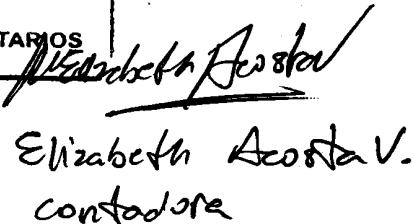 TARIOS
Elizabeth Acosta V
Elizabeth Acosta V.
contadora